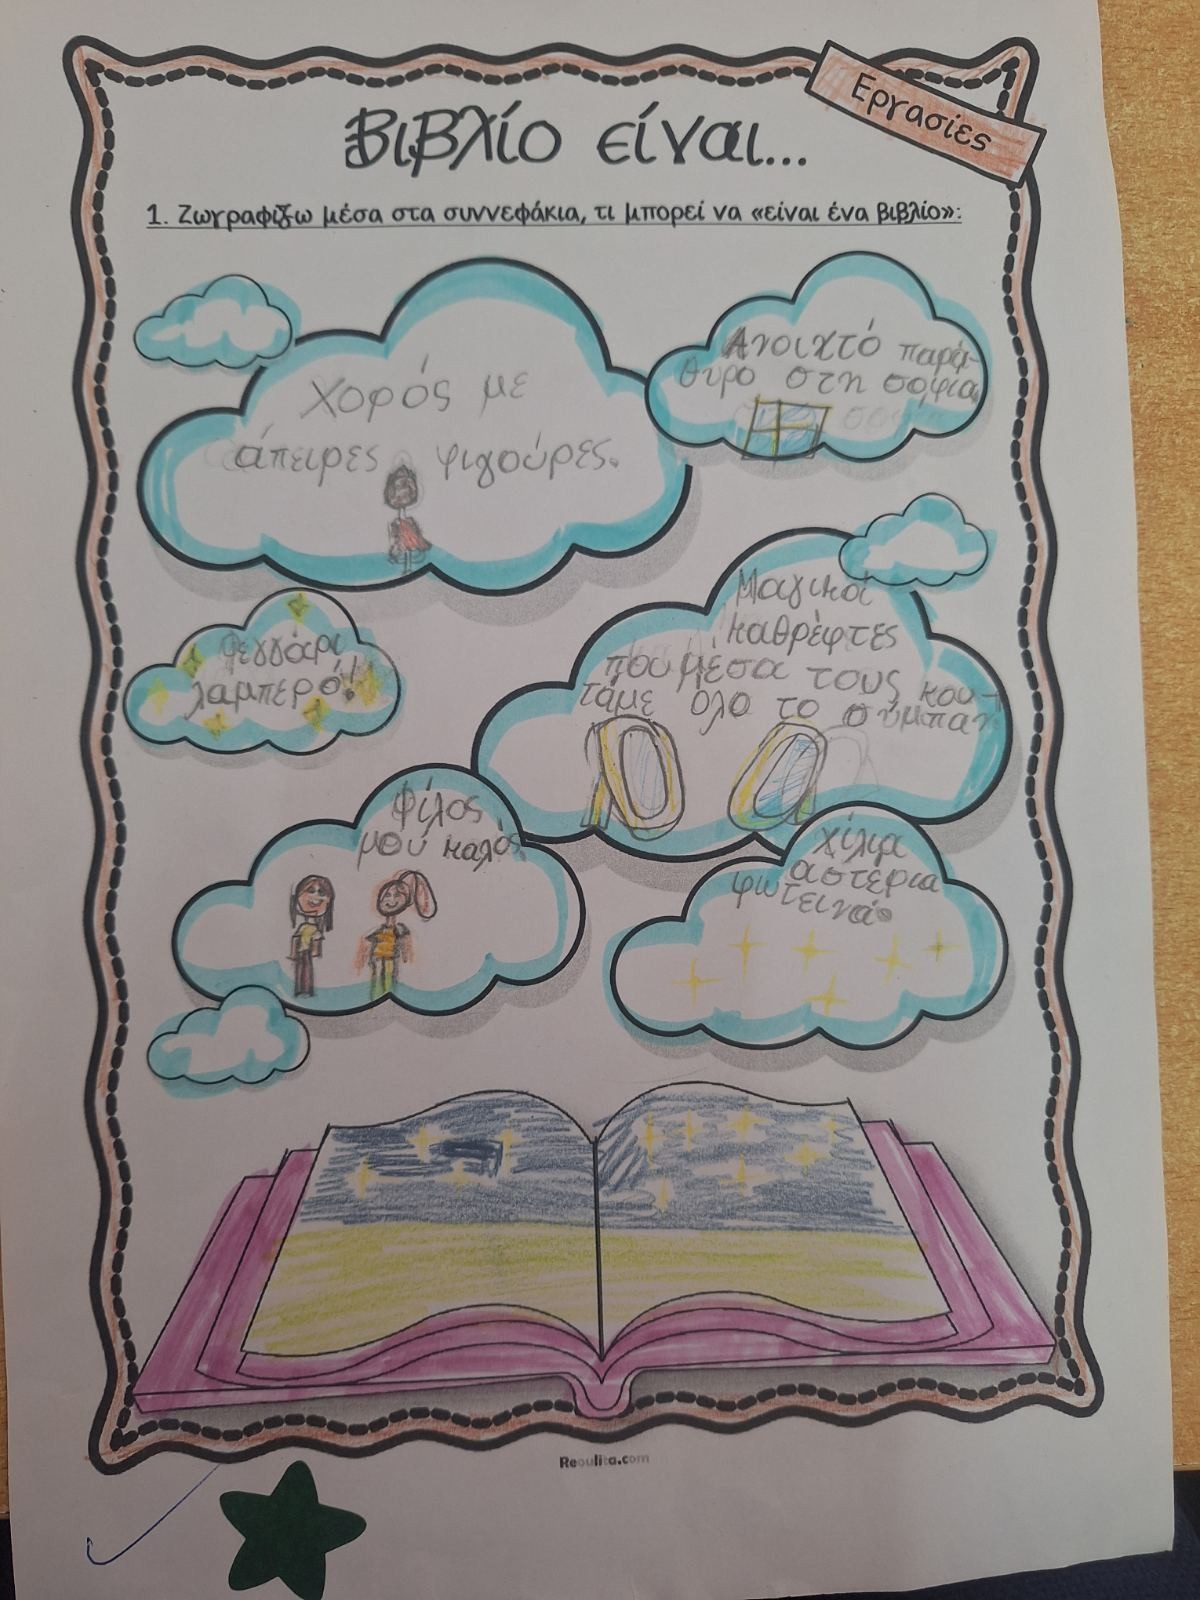 Εργασίες
Βιβλίο είναι...
1. Ζωγραφίζω μέσα στα συννεφάκια, τι μπορεί να «είναι ένα βιβλίο»:
Χορός με
άπειρες φιγούρες.
Ανοιχτό παρά-
θυρο στη σοφία.
Φεγγάρι
λαμπερό!
Μαγικοί
καθρέφτες
που μέσα τους κοι-
τάμε όλο το σύμπαν.
Φίλος
μου καλός.
Χίλια
αστέρια
φωτεινά.
Reoulita.com